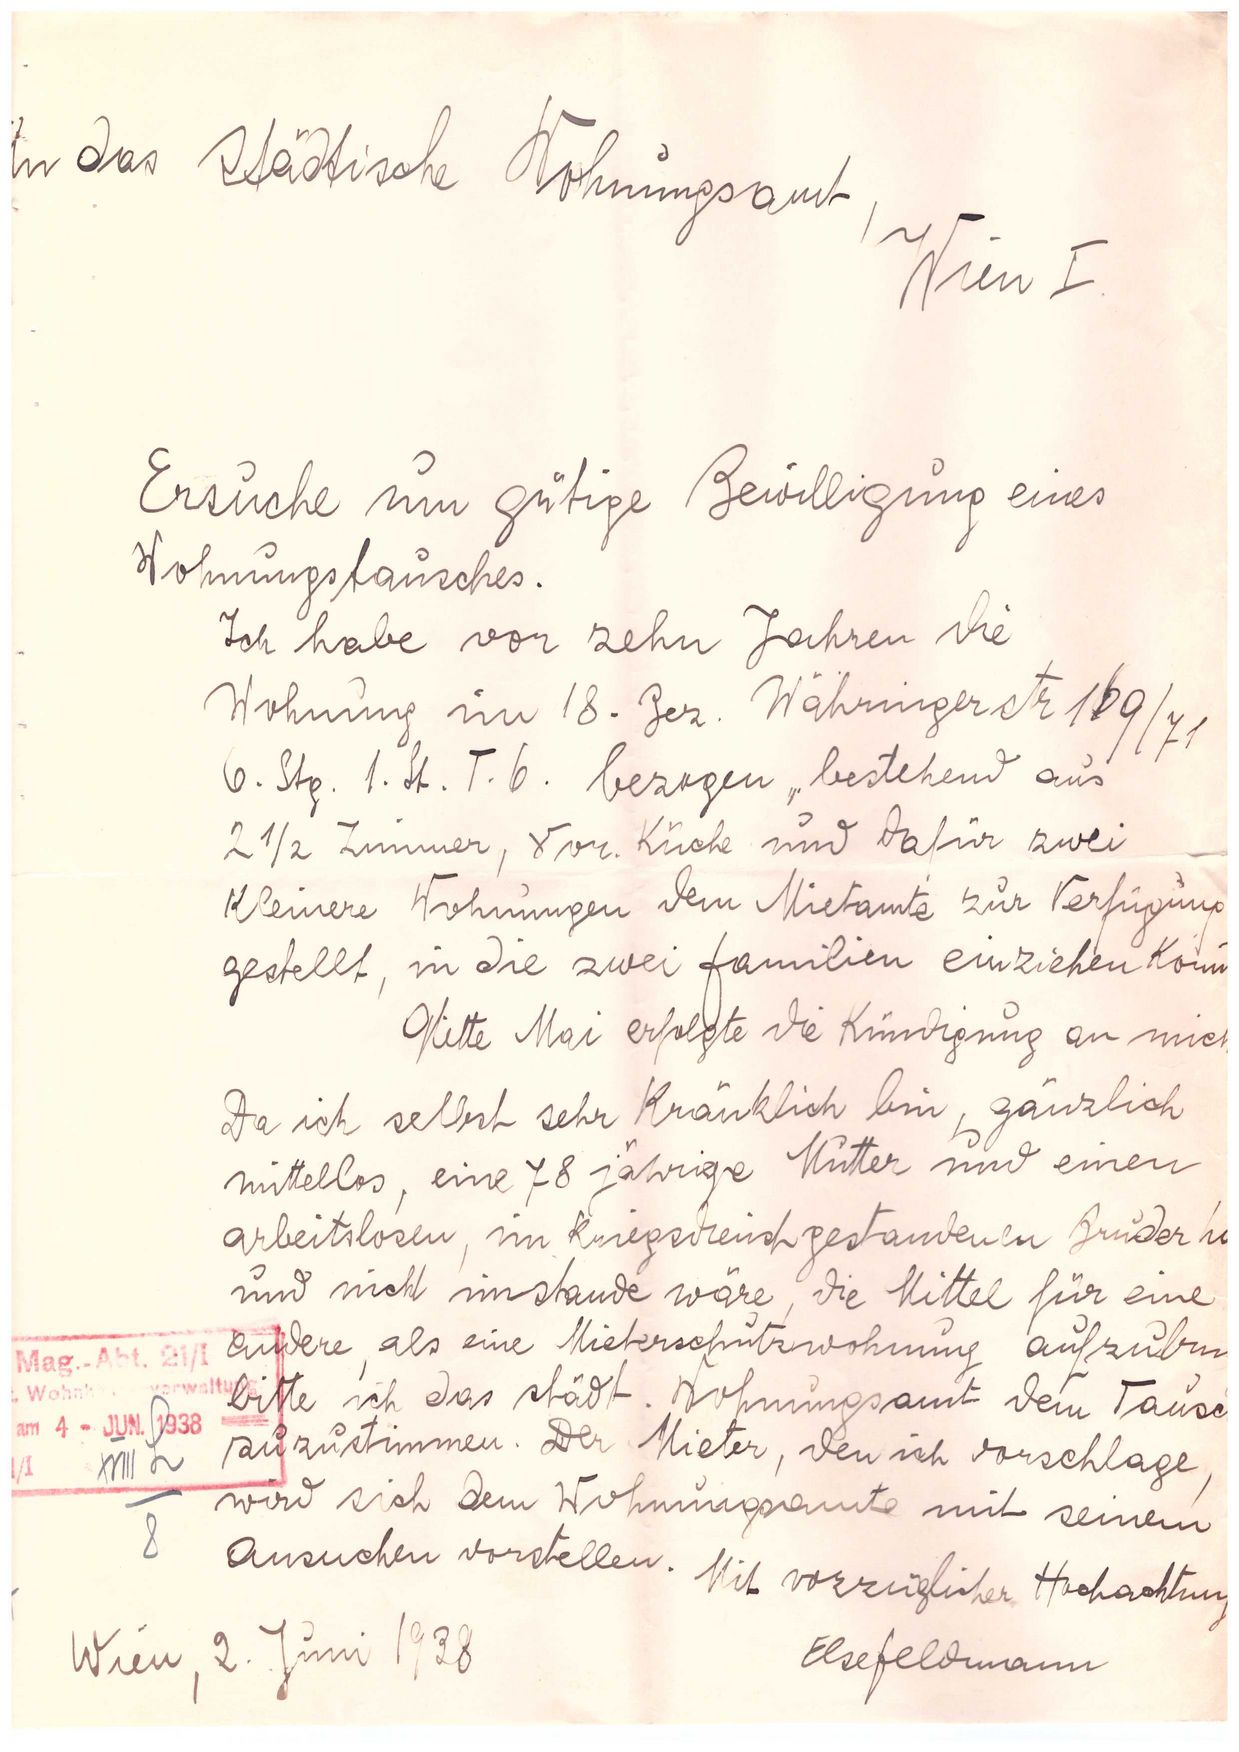 An das städtische Wohnungsamt,
Wien I.
Ersuche um gütige Bewilligung eines
Wohnungstausches.
Ich habe vor zehn Jahren die
Wohnung im 18. Bez. Währingerstr 169/71
6. Stg. 1. St. T. 6. bezogen, bestehend aus
2 1/2 Zimmer, Vor. Küche und dafür zwei
kleinere Wohnungen dem Mietamte zur Verfügung
gestellt, in die zwei Familien einziehen konn
Mai erfolgte die Kündigung an mich
Da ich selbst sehr kränklich bin, gänzlich
mittellos, eine 78 jährige Mutter und einen
arbeitslosen, im Kriegsdienst gestandenen Bruder h
und nicht imstande wäre, die Mittel für eine
andere, als eine Mieterschutzwohnung aufzubrin
bitte ich das städt. Wohnungsamt dem Tausch
zuzustimmen. Der Mieter, den ich vorschlage,
wird sich dem Wohnungsamte mit seinem
Ansuchen vorstellen.
Mit vorzüglicher Hochachtung
Wien, 2. Juni 1938
Else Feldmann
Mag.-Abt. 21/I
am 4 - JUN. 1938
XVIII
8